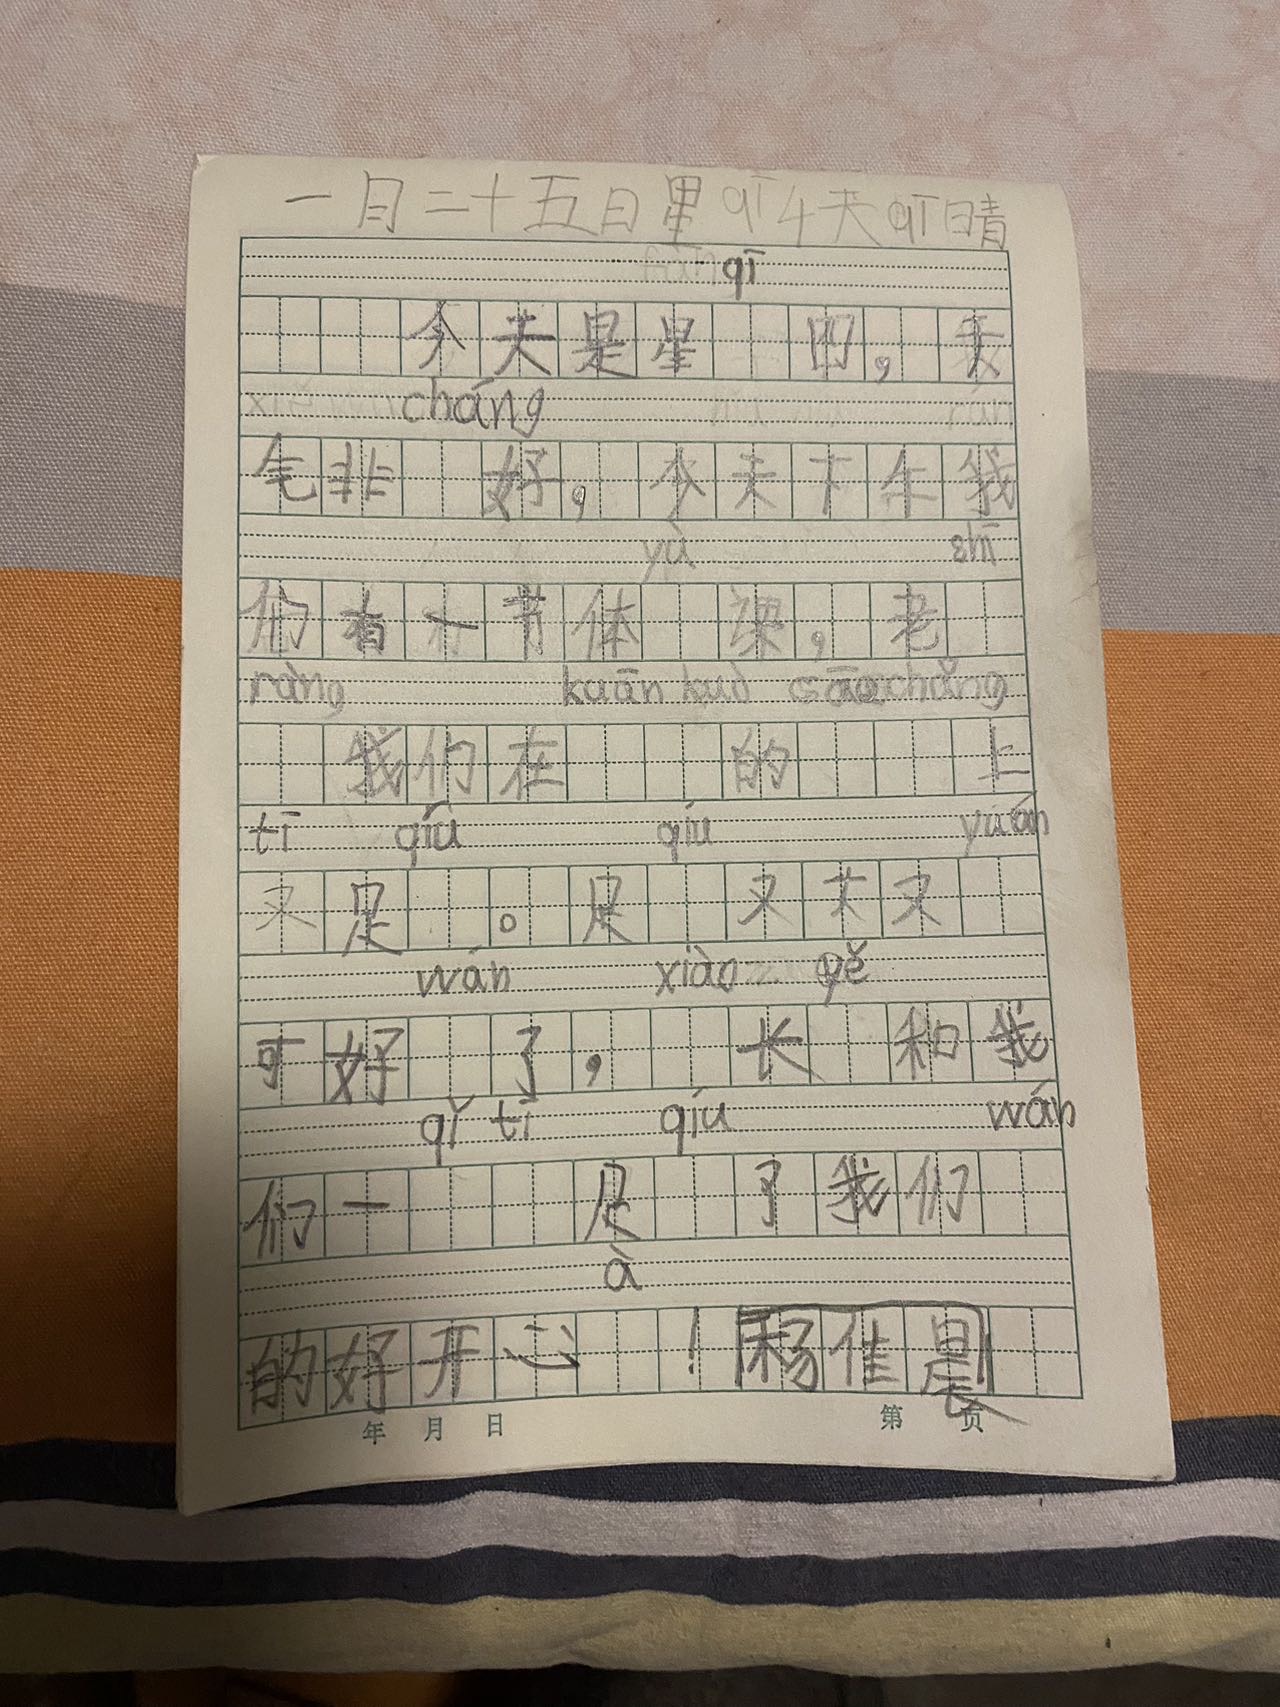 一月二十五日星qī4天qì晴
qī
今天是星 四，天
cháng
气非 好，今天下午我
yù shī
们有一节体 课，老
ràng kuān kuò cāo chǎng
我们在 的 上
tī qíu qíu yuán
又足 。足 又大又
wán xiào yě
可好 了， 长 和我
qǐ tī qíu wán
们一 足 了我们
à
的好开心 ！杨佳晨
年 月 日 第 页